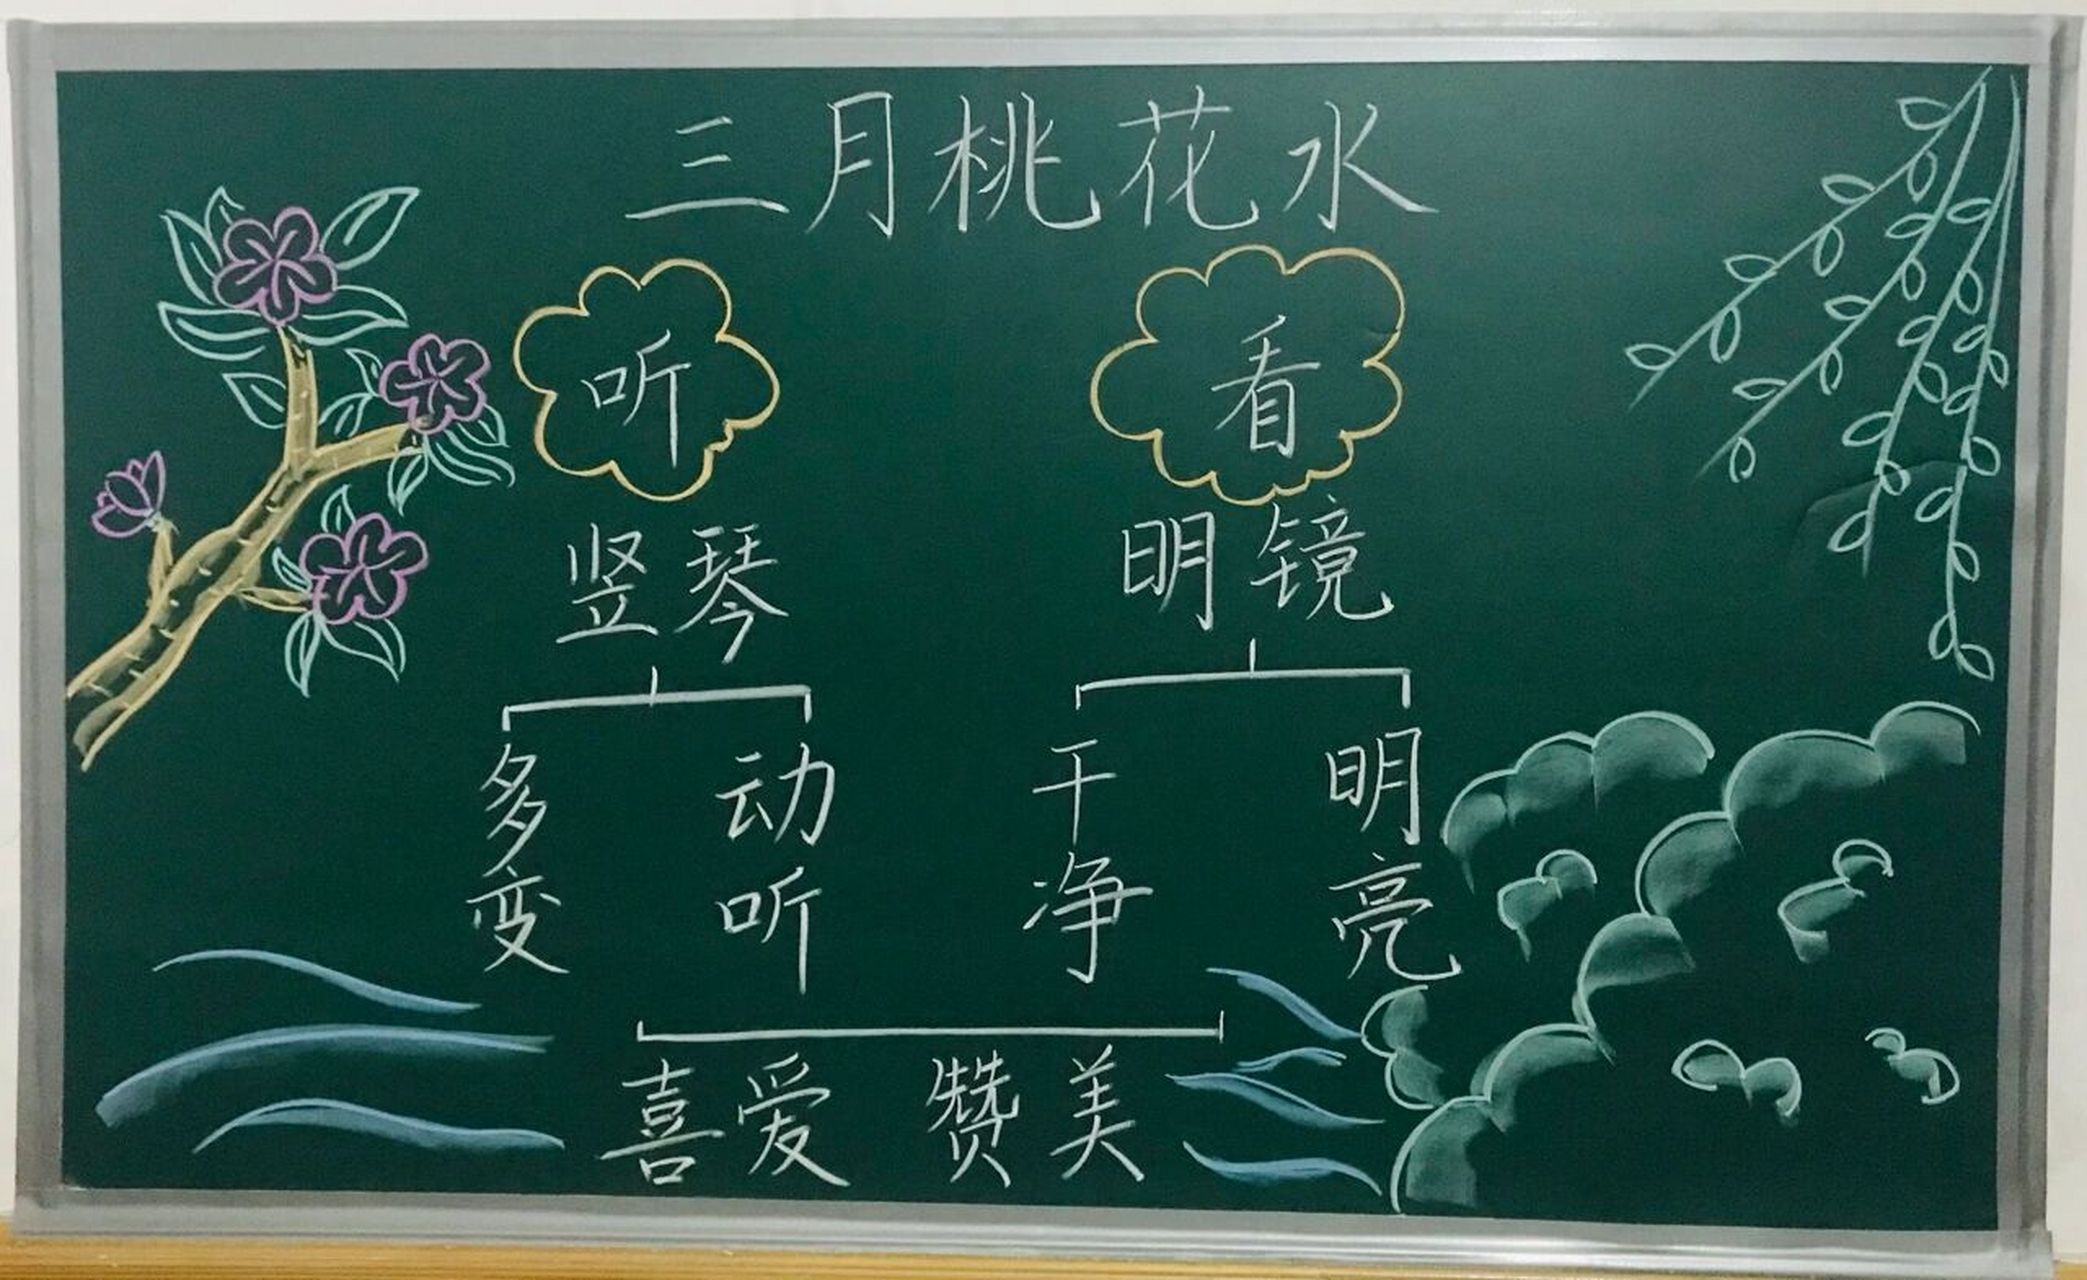 三月桃花水
听 看
竖琴 明镜
多变 动听 干净 明亮
喜爱 赞美